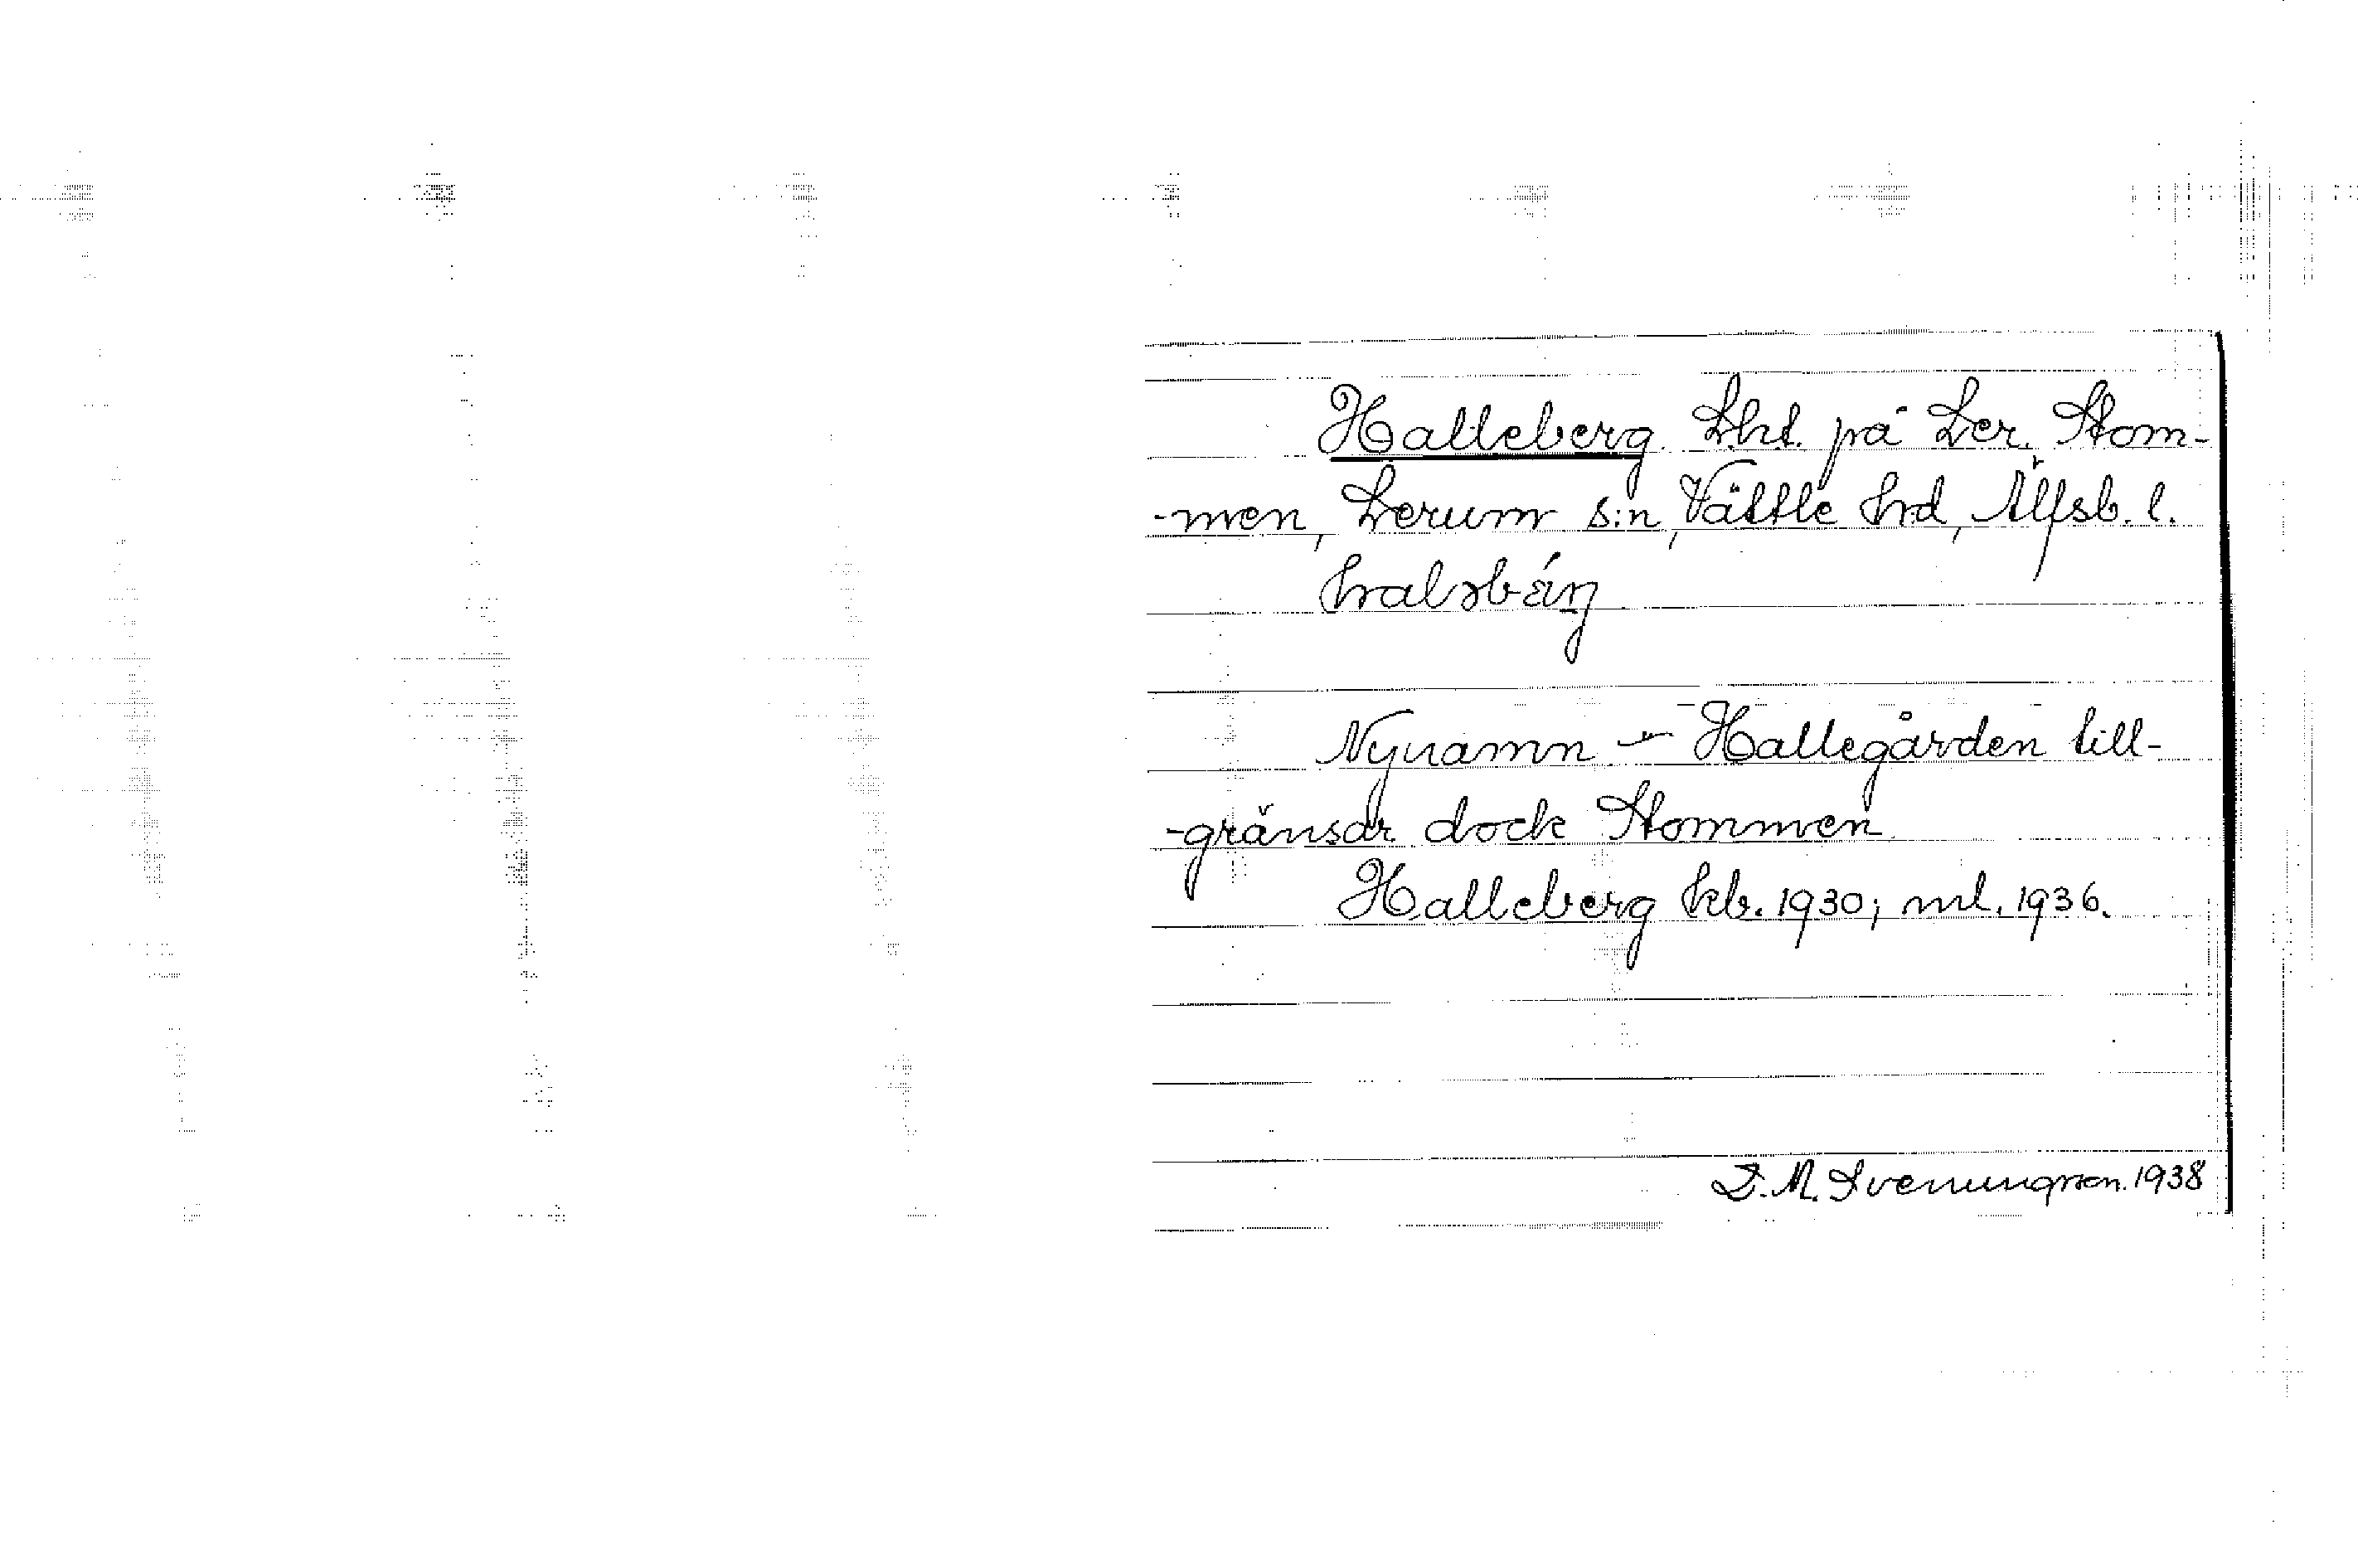 Halleberg. Lht. på Ler. Stom-
-men, Lerum s:n, Vättle hrd, Älfsb. l.
halɜbǽrj
Nynamn – Hallegården till-
-gränsar dock Stommen
Halleberg kb. 1930; ml. 1936.
D. M. Svenungsson. 1938